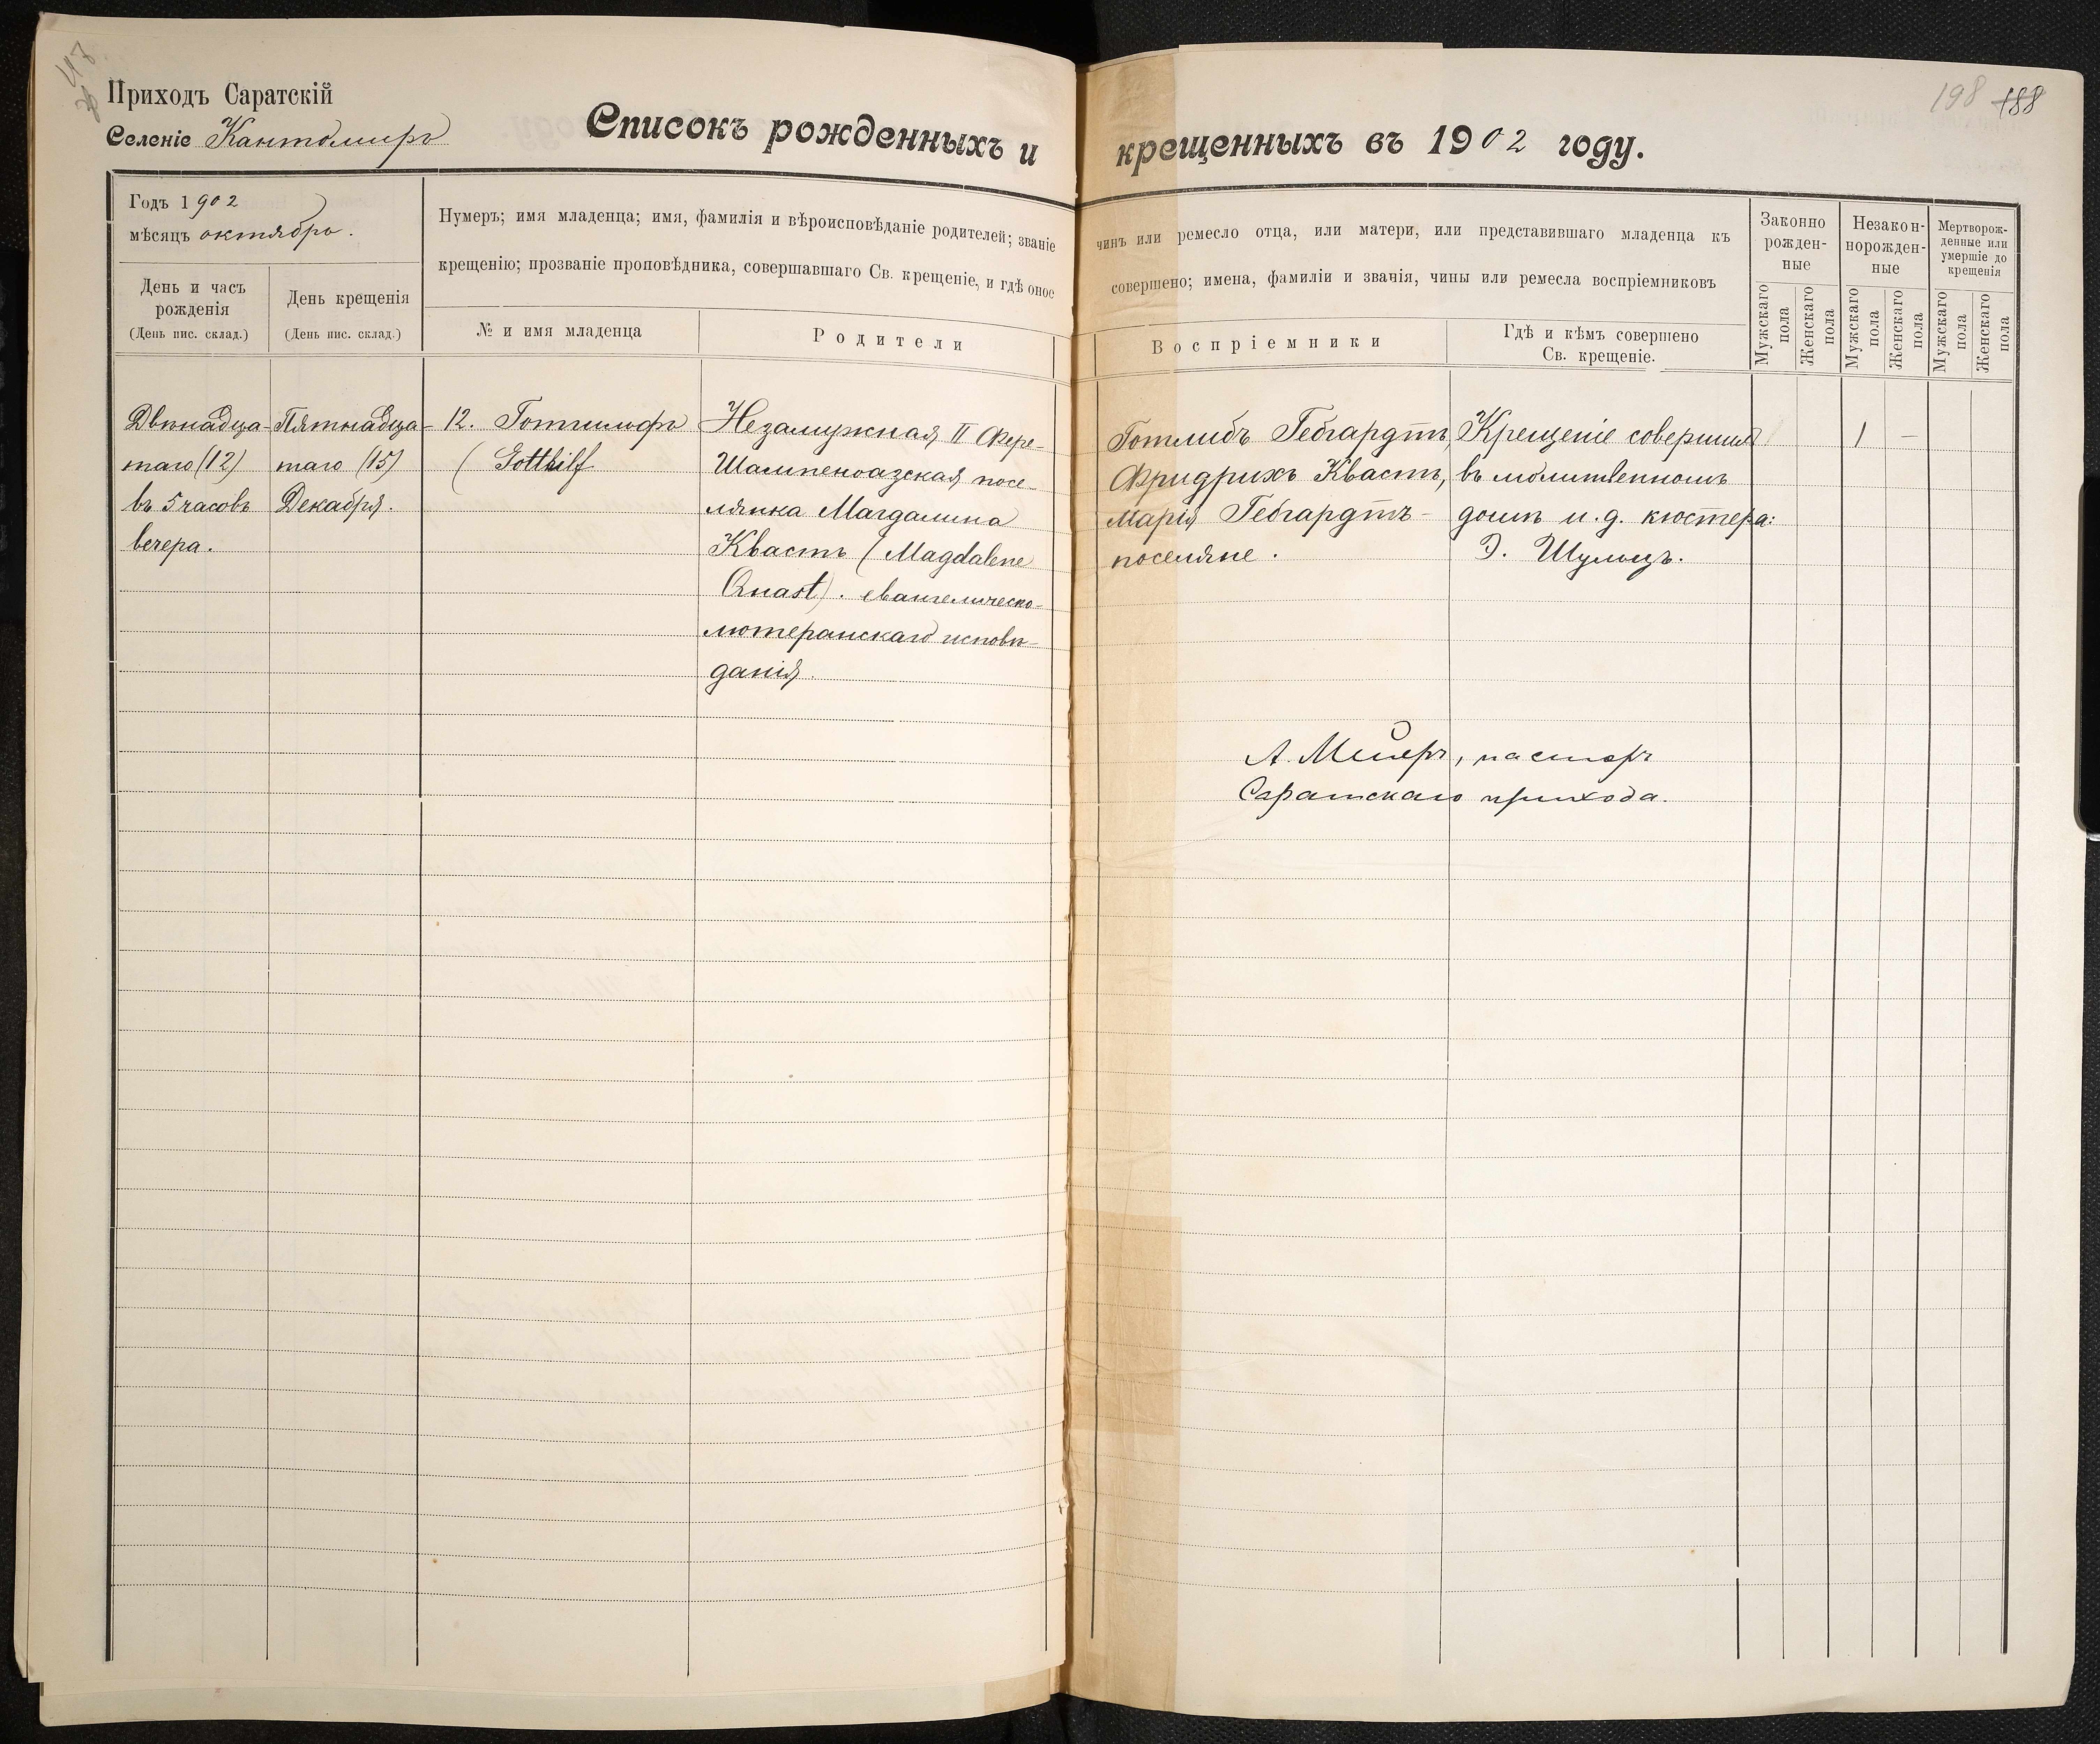 Приходъ Саратскій
Селеніе Кантемиръ
Списокъ рожденныхъ и крещенныхъ въ 1902 году.
198 188
Годъ 1902
мѣсяцъ октябрь.
Нумеръ; имя младенца; имя, фамилія и вѣроисповѣданіе родителей; званіе чинъ или ремесло отца, или матери, или представившаго младенца къ
крещенію; прозваніе проповѣдника, совершавшаго Св. крещеніе, и гдѣ оное совершено; имена, фамиліи и званія, чины или ремесла воспріемниковъ
День и часъ
рожденія
(День пис. склад.)
День крещенія
(День пис. склад.)
№ и имя младенца
Родители
Воспріемники
Гдѣ и кѣмъ совершено
Св. крещеніе.
Законно
рожден-
ные
Незакон-
норожден-
ные
Мертворож-
денные или
умершіе до
крещенія
Мужскаго
пола
Женскаго
пола
Мужскаго
пола
Женскаго
пола
Мужскаго
пола
Женскаго
пола
Двѣнадца-
таго (12)
въ 5 часовъ
вечера.
Пятнадца-
таго (15)
Декабря.
12. Готтильфъ
(Gotthilf
Незамужная II Фере-
Шампеноазская посе-
лянка Магдалина
Квастъ (Magdalene
Quast). евангелическо-
лютеранскаго исповѣ-
данія.
Готлибъ Гебгардтъ,
Фридрихъ Квастъ,
Марія Гебгардтъ -
поселяне.
Крещеніе совершилъ
въ молитвенномъ
домѣ и. д. кюстера:
Э. Шульцъ.
1 —
А. Мейеръ, пасторъ
Саратскаго прихода.